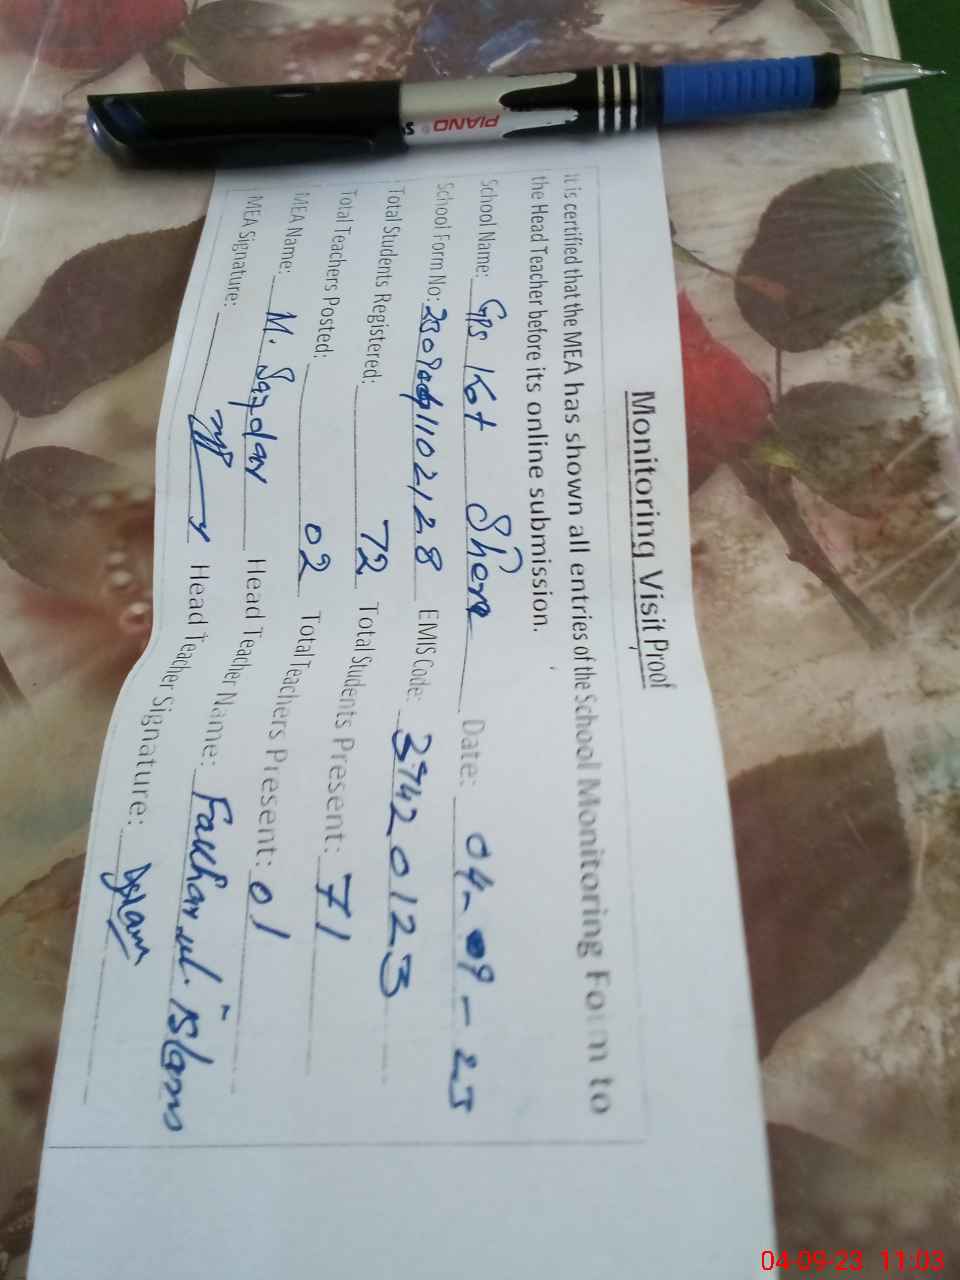 Monitoring Visit Proof
It is certified that the MEA has shown all entries of the School Monitoring Form to
the Head Teacher before its online submission.
School Name: Gps Kot Shera Date: 04-09-23
School Form No: EMIS Code: 37420123
Total Students Registered: 72 Total Students Present: 71
Total Teachers Posted: 02 Total Teachers Present: 01
MEA Name: M. Safdar Head Teacher Name: Fakhar ul. islam
MEA Signature: Head Teacher Signature:
PIANO
04-09-23 11:03